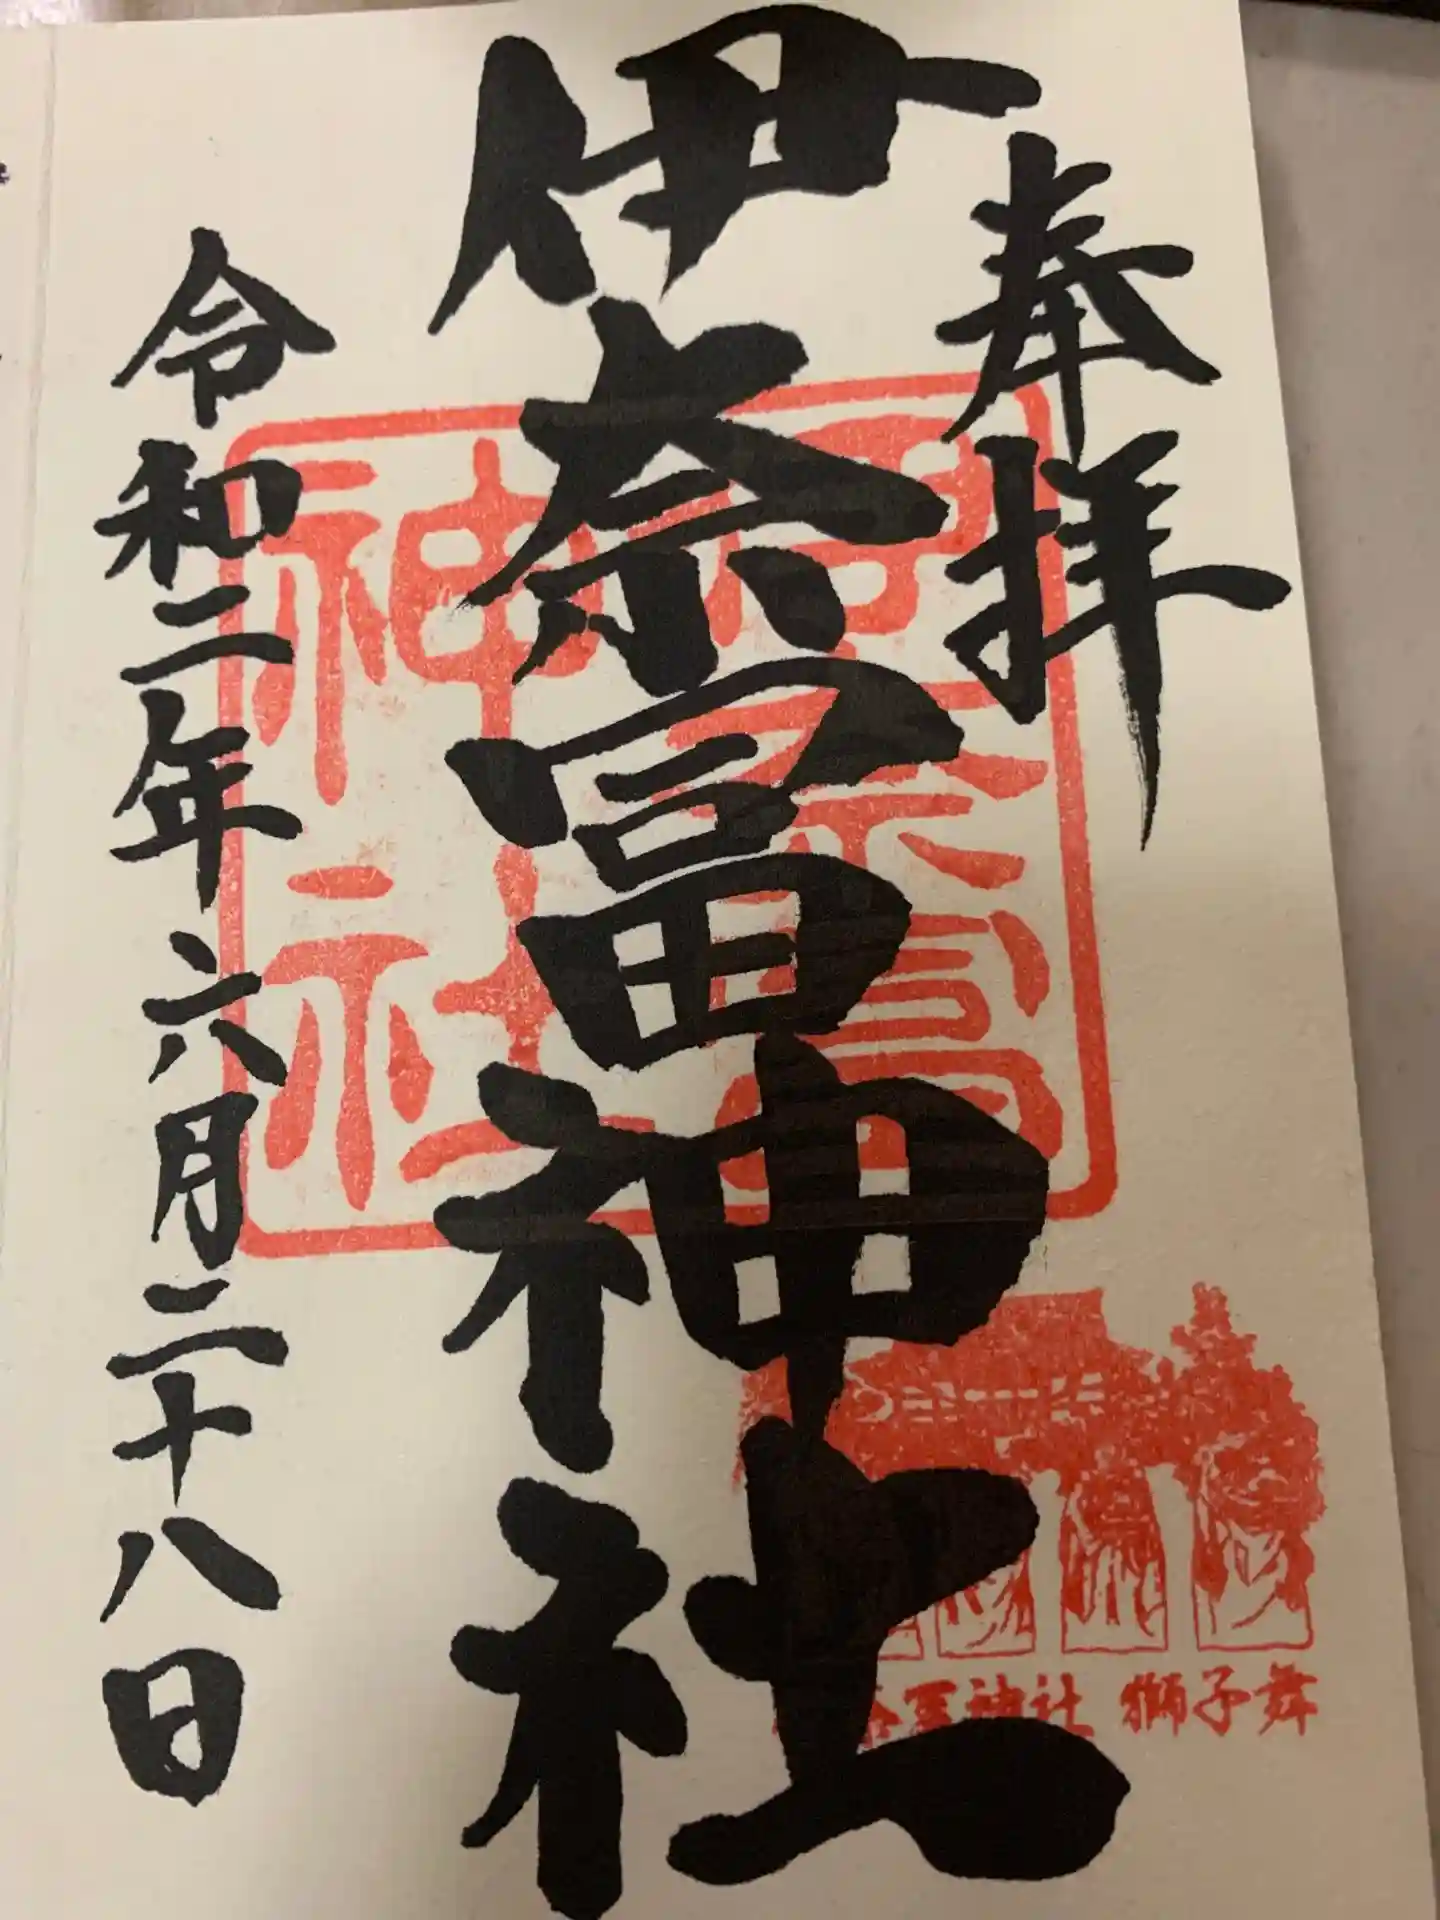 奉拝
伊奈冨神社
伊奈冨神社
令和二年六月二十八日
奈冨神社 獅子舞